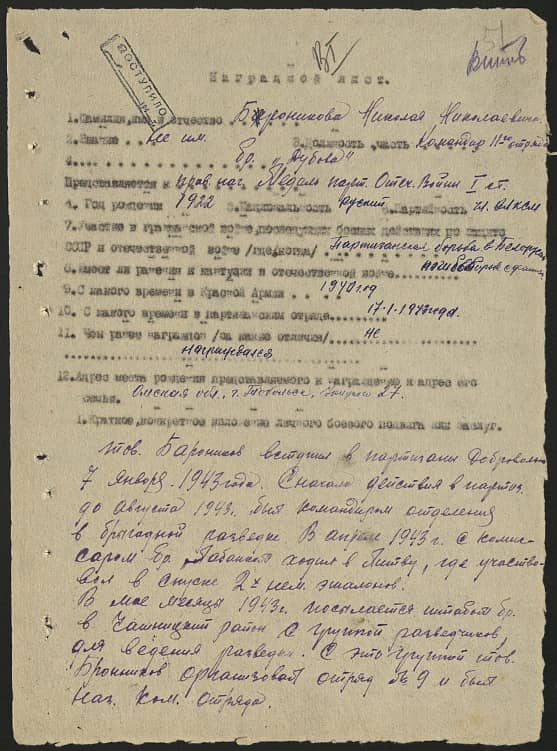 51
ВТ
Витеб
ПОСТУПИЛО
Наградной лист.
1.Фамилия, имя и отчество Бронникова Николая Николаевича.
2.Звание . . не им. 3.Должность, часть Командир 11го отряда
бр. „Дубова"
Представляется к прав. наг. Медаль парт. Отеч. Войны I ст.
4. Год рождения 1922 5.Национальность русский 6.Партийность чл. ВЛКСМ
7.Участие в гражданской войне, последующих боевых действиях по защите
СССР и отечественной войне /где, когда/ Партизанская борьба в Белорусси
8.Имеет ли ранения и контузии в отечественной войне. . . .
9.С какого времени в Красной Армии . . . . 1940 год
10. С какого времени в партизанском отряде. . . . . . 17-1-1943 года.
11. Чем ранее награжден /за какие отличия/ . . не
награждался
12.Адрес места рождения представляемого к награждению и адрес его
семьи. Омская обл., г. Тобольск, 27.
1.Краткое, конкретное изложение личного боевого подвига или заслуг.
тов. Бароников вступил в партизаны добровольно
7 января 1943 года. Сначала действия в партиз.
до августа 1943г. был командиром отделения
в бригадной разведке. В апреле 1943 г. с комис-
саром бр. ходил в Литву, где участво-
вал в спуске 2х нем. эшалонов.
В мае месяцы 1943г. посылается штабом бр.
в Чашницкий район с группой разведчиков,
для ведения разведки. С этой группой тов.
Бронников организовал отряд №9 и был
наз. ком. отряда.